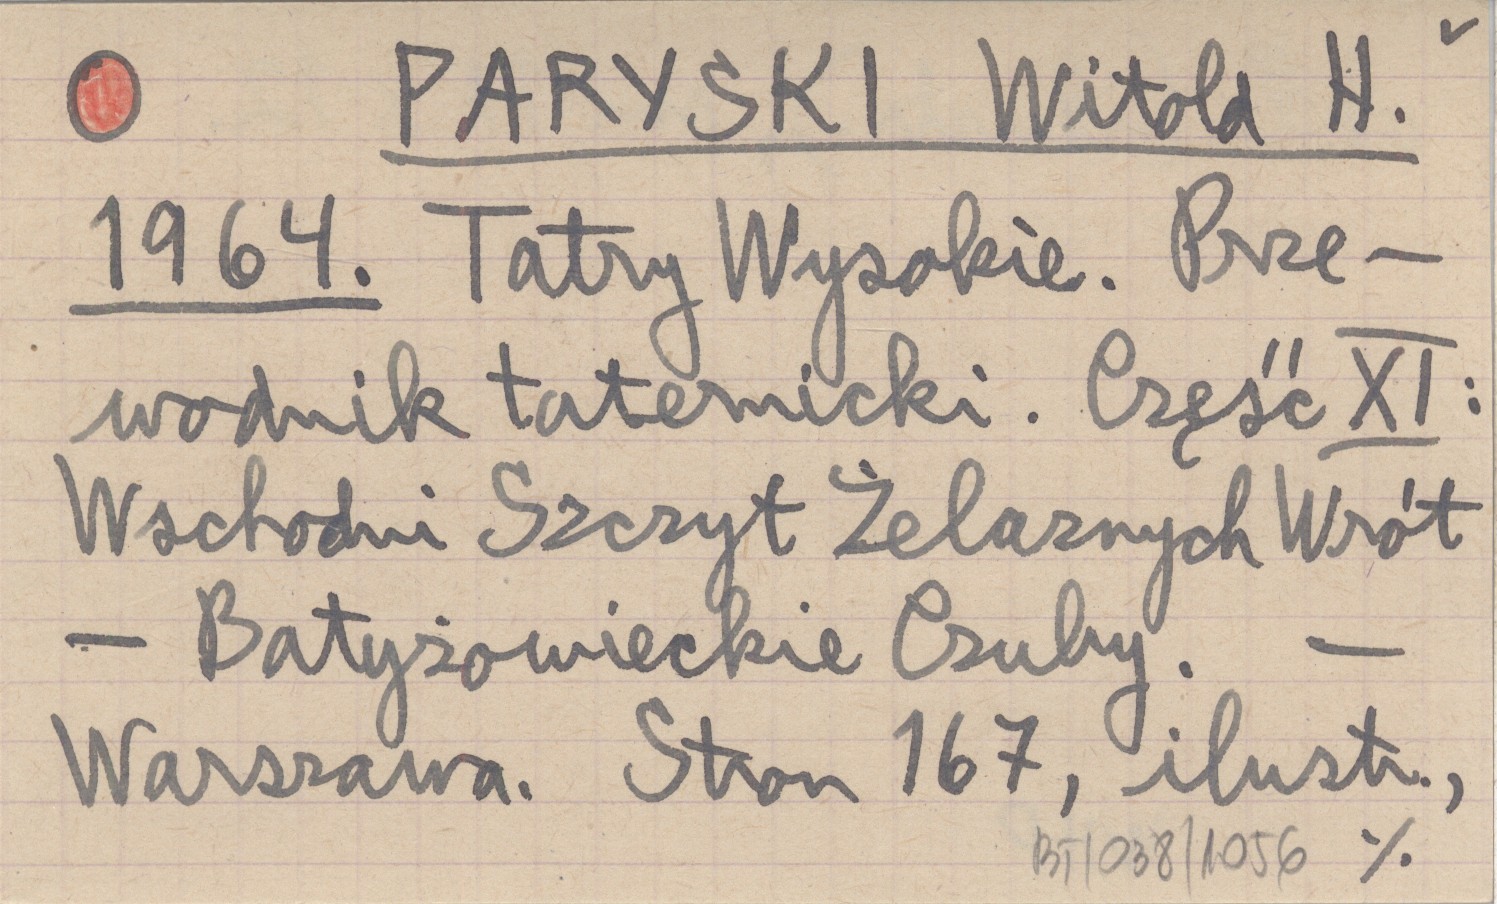 PARYSKI Witold H. ✓
1964. Tatry Wysokie. Prze-
wodnik taternicki. Część XI:
Wschodni Szczyt Żelaznych Wrót
- Batyżowieckie Czuby. -
Warszawa. Stron 167, ilustr.,
BT/038/1056 ./.